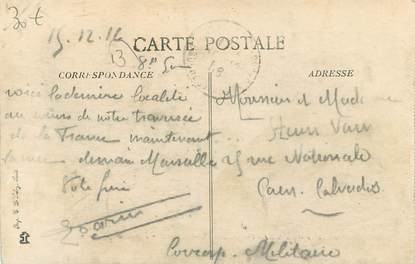 30€
15.12.14
13
CARTE POSTALE
CORRESPONDANCE
ADRESSE
voici la dernière localité
au cours de notre traversée
de la France maintenant
demain Marseille
Votre frère
Monsieur et Madame
Henri
25 rue Nationale
Caen Calvados
Corresp. Militaire